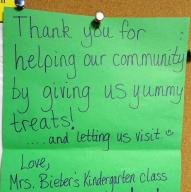 Thank you for
helping our community
by giving us yummy
treats!
.....and letting us visit ☺
Love,
Mrs. Bieber's Kindergarten class